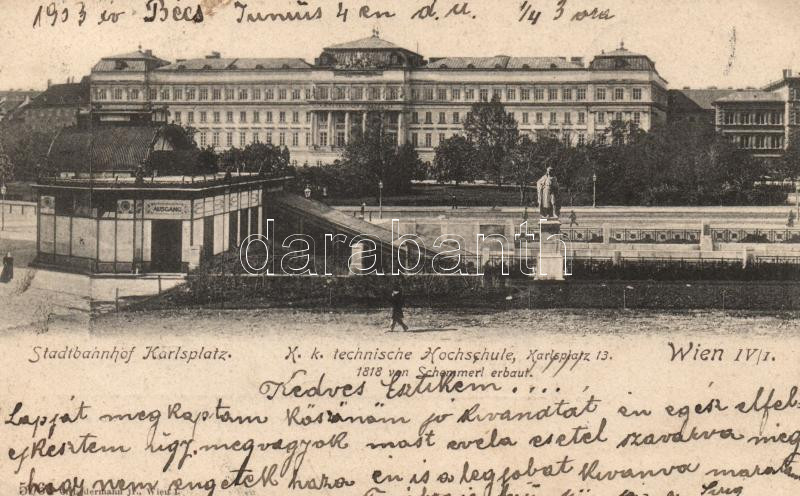 1903 év Bécs Junius 4 en d. u. 1/4 3 ora
AUSGANG
darabanth
Stadtbahnhof Karlsplatz.
K. k. technische Hochschule, Karlsplatz 13.
1818 von Schemmerl erbaut.
Wien IV/1.
Kedves Esztikém....
Lapját megkaptam Köszönöm jó kivanatát, én egész elfel
ejtkeztem úgy megvagyok most evéla esetel szavarva meg
hogy nem engetek haza én is a legjobat Kivanva marat
Ledermann jr., Wien I.